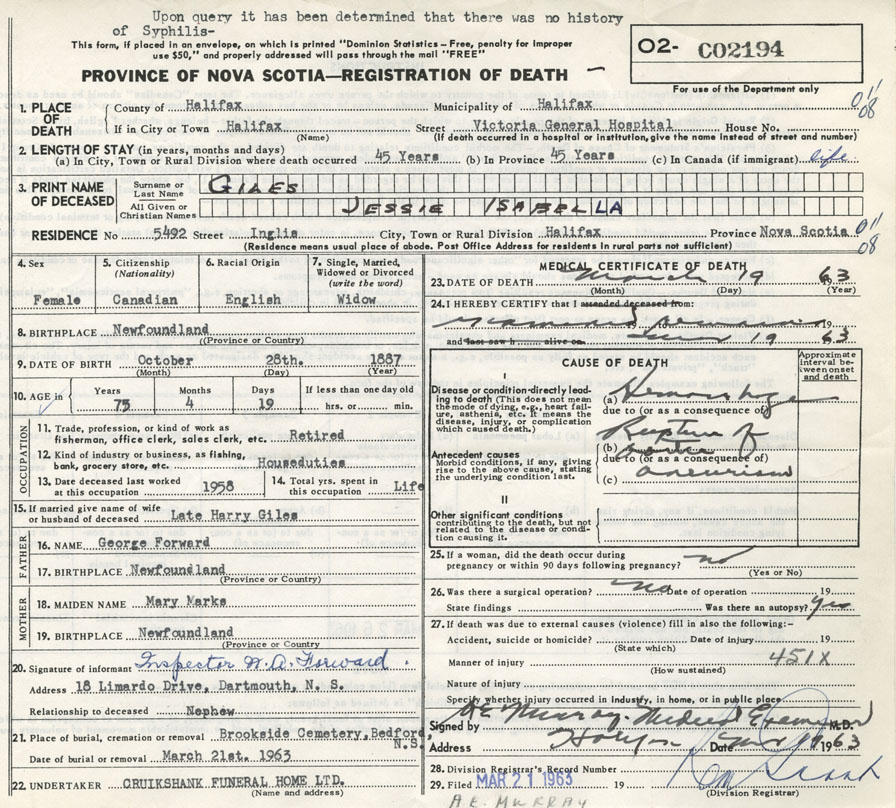 Upon query it has been determined that there was no history
of Syphilis-
This form, if placed in an envelope, on which is printed "Dominion Statistics - Free, penalty for improper
use $50," and properly addressed will pass through the mail "FREE"
O2- C02194
PROVINCE OF NOVA SCOTIA—REGISTRATION OF DEATH
For use of the Department only
1. PLACE OF DEATH
County of Halifax Municipality of Halifax
If in City or Town Halifax Street Victoria General Hospital House No.
(Name) (If death occurred in a hospital or institution, give the name instead of street and number)
2. LENGTH OF STAY (in years, months and days)
(a) In City, Town or Rural Division where death occurred 45 Years (b) In Province 45 Years (c) In Canada (if immigrant) life
3. PRINT NAME OF DECEASED
Surname or Last Name GILES
All Given or Christian Names JESSIE ISABELLA
RESIDENCE No 5492 Street Inglis City, Town or Rural Division Halifax Province Nova Scotia
(Residence means usual place of abode. Post Office Address for residents in rural parts not sufficient)
011
08
011
08
4. Sex
Female
5. Citizenship (Nationality)
Canadian
6. Racial Origin
English
7. Single, Married, Widowed or Divorced (write the word)
Widow
8. BIRTHPLACE Newfoundland
(Province or Country)
9. DATE OF BIRTH October 28th. 1887
(Month) (Day) (Year)
10. AGE in Years 75 Months 4 Days 19 If less than one day old hrs. or min.
OCCUPATION
11. Trade, profession, or kind of work as fisherman, office clerk, sales clerk, etc. Retired
12. Kind of industry or business, as fishing, bank, grocery store, etc. Houseduties
13. Date deceased last worked at this occupation 1958
14. Total yrs. spent in this occupation Life
15. If married give name of wife or husband of deceased Late Harry Giles
FATHER
16. NAME George Forward
17. BIRTHPLACE Newfoundland
(Province or Country)
MOTHER
18. MAIDEN NAME Mary Marks
19. BIRTHPLACE Newfoundland
(Province or Country)
20. Signature of informant Inspector W. A. Forward.
Address 18 Limardo Drive, Dartmouth, N. S.
Relationship to deceased Nephew
21. Place of burial, cremation or removal Brookside Cemetery, Bedford, N.S.
Date of burial or removal March 21st. 1963
22. UNDERTAKER CRUIKSHANK FUNERAL HOME LTD.
(Name and address)
MEDICAL CERTIFICATE OF DEATH
23. DATE OF DEATH March 19 63
(Month) (Day) (Year)
24. I HEREBY CERTIFY that I attended deceased from:
19
and last saw h alive on 19 63
CAUSE OF DEATH
Approximate interval between onset and death
I
Disease or condition directly leading to death (This does not mean the mode of dying, e.g., heart failure, asthenia, etc. It means the disease, injury, or complication which caused death.)
(a) Hemorrhage
due to (or as a consequence of)
Antecedent causes
Morbid conditions, if any, giving rise to the above cause, stating the underlying condition last.
Rupture of
(b) aorta
due to (or as a consequence of)
(c) aneurism
II
Other significant conditions contributing to the death, but not related to the disease or condition causing it.
25. If a woman, did the death occur during pregnancy or within 90 days following pregnancy? no
(Yes or No)
26. Was there a surgical operation? no Date of operation 19
State findings Was there an autopsy? yes
27. If death was due to external causes (violence) fill in also the following:-
Accident, suicide or homicide? Date of injury 19
(State which)
Manner of injury 451X
(How sustained)
Nature of injury
Specify whether injury occurred in industry, in home, or in public place
Signed by A E Murray. Medical Examiner M.D.
Address Halifax Date 1963
28. Division Registrar's Record Number
29. Filed MAR 21 1963 19
(Division Registrar)
A.E. MURRAY